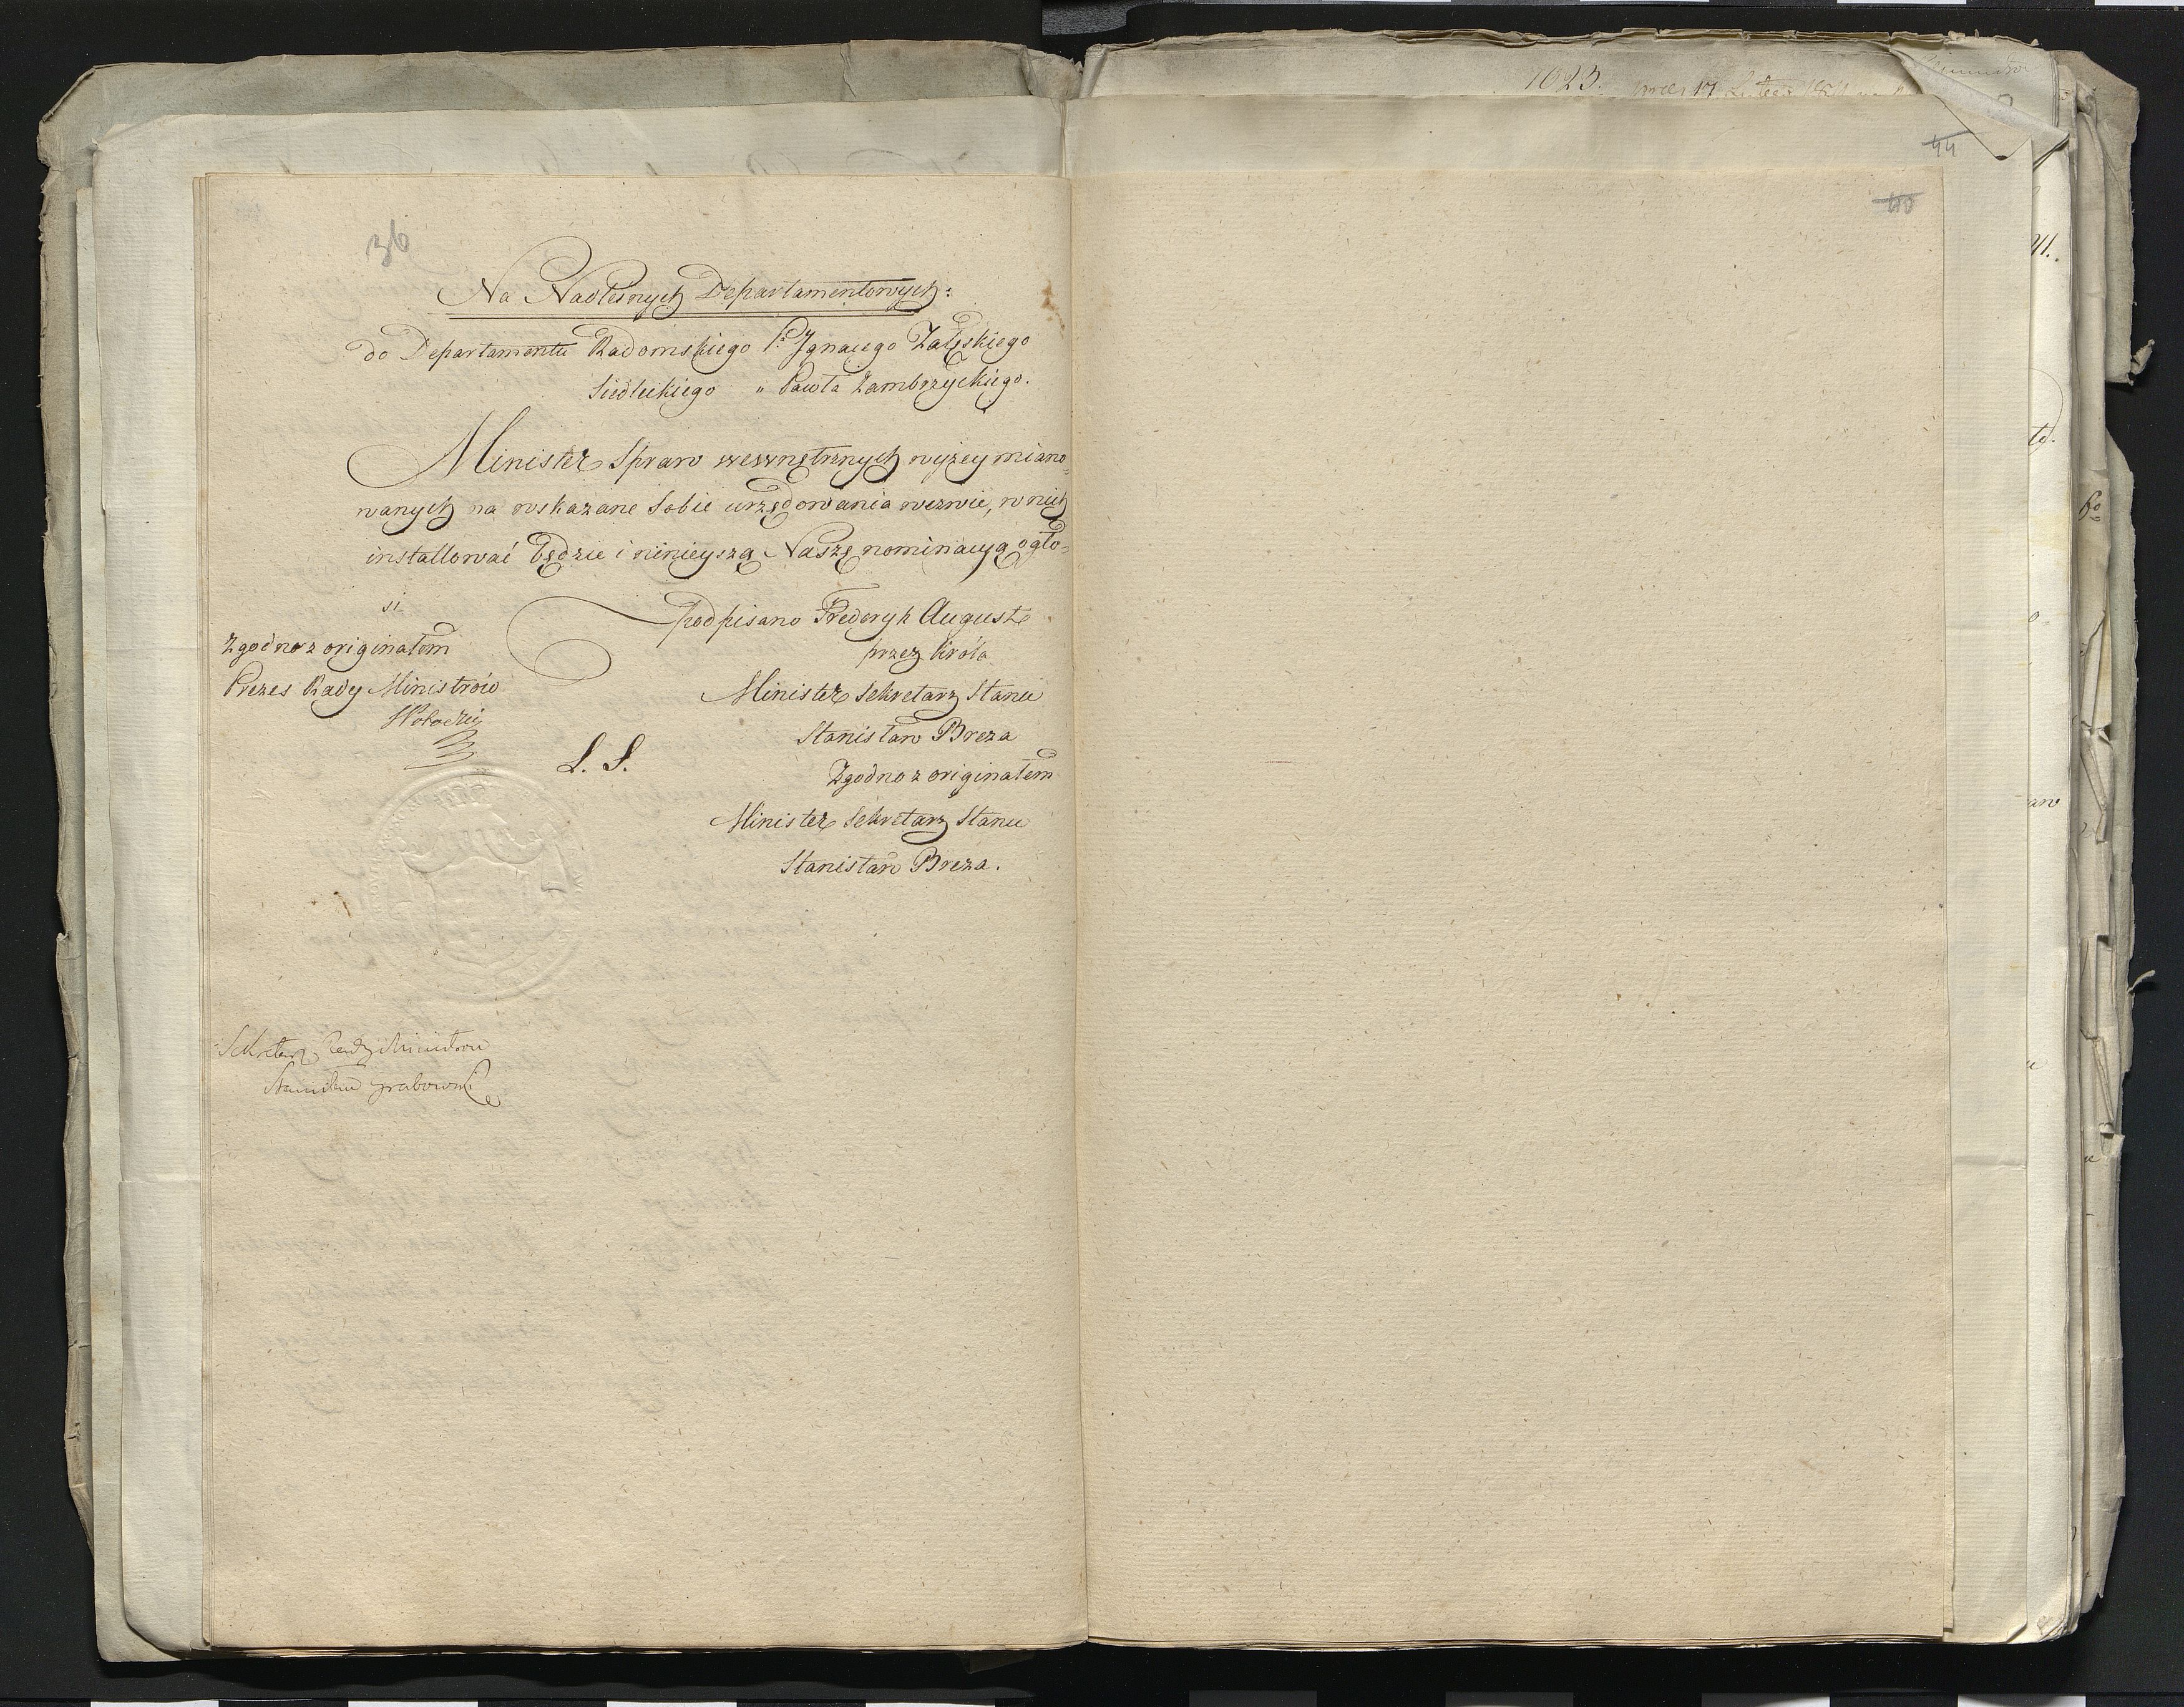 36
Na Nadleśnych Departamentowych:
do Departamentu Radomskiego P. Ignacego Załęskiego
Siedleckiego " Pawła Zambrzyckiego.
Minister Spraw wewnętrznych wyżey miano=
wanych na wskazane Sobie urzędowania wezwie, w nich
installować będzie i ninieyszą Naszę nominacyą ogło=
si
podpisano Frederyk August
przez Króla
Minister Sekretarz Stanu
Stanisław Breza
Zgodno z originałem
Minister Sekretarz Stanu
Stanisław Breza.
Zgodno z originałem
Prezes Rady Ministrów
L. S.
Sekretarz Rady Ministrow
Stanisław Grabowski
1023.
17
44
40